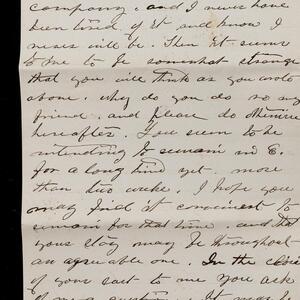 company, and I never have
been tired of it and know I
never will be. Then it seems
to me to be somewhat strange
that you will think as you wrote
above. why do you do so my
friend and please do otherwise
hereafter. You seem to be
intending to remain in E.
for a long time yet. more
than two weeks. I hope you
may find it convenient to
remain for that time, and that
your stay may be throughout
an agreeable one. In the close
of your last to me you ask
of me a question. It